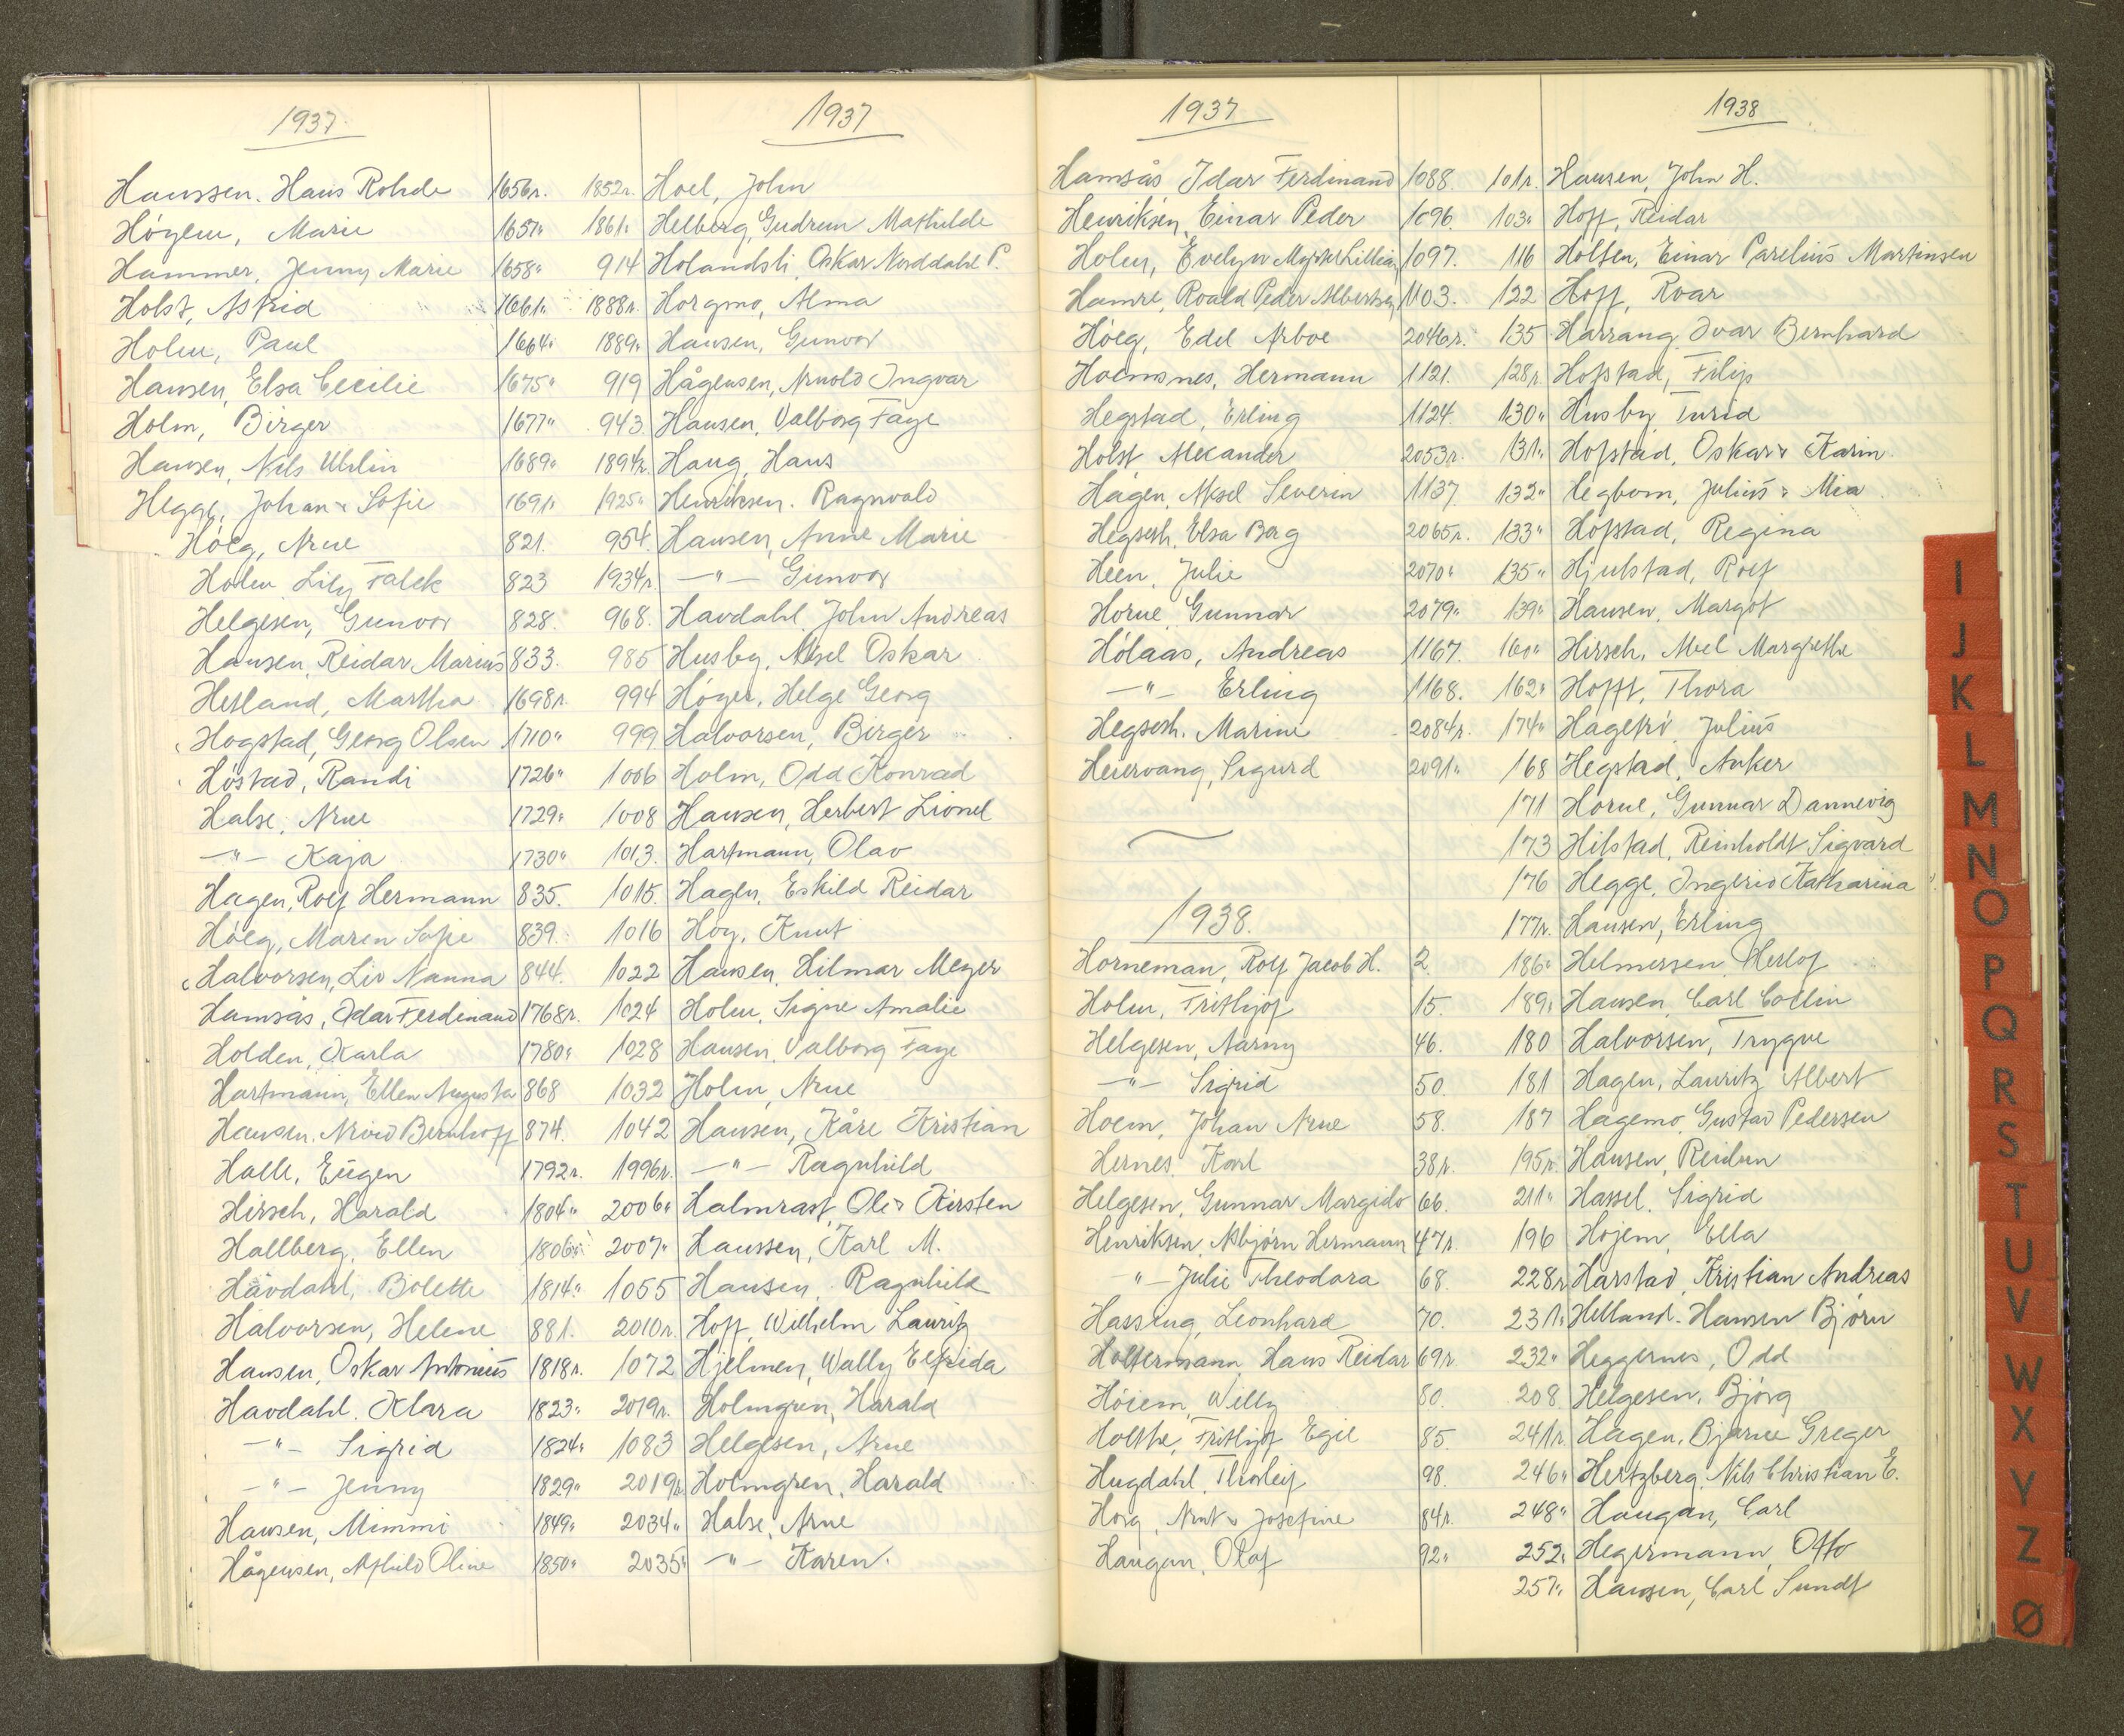 1937
Hanssen. Hans Rohde 1656r.
Höyem, Marie 1657"
Hammer, Jenny Marie 1658"
Holst, Astrid 1661"
Holm, Paul 1664"
Hansen, Elsa Cecilie 1675"
Holm, Birger 1677"
Hansen, Nils Uhlin 1689"
Hegge, Johan & Sofie 1691"
Höeg, Arne 821.
Holm Lily Falck 823
Helgesen, Gunvor 828.
Hansen, Reidar Marius 833.
Hetland, Martha 1698r.
Hogstad, Georg Olsen 1710"
Höstad, Randi 1726"
Halse, Arne 1729"
—"— Kaja 1730"
Hagen, Rolf Hermann 835.
Höeg, Maren Sofie 839.
Halvorsen, Liv Nanna 844.
Hamsås, Idar Ferdinand 1768r.
Holden, Karla 1780"
Hartmann, Ellen Augusta 868
Hansen, Arvid Bernhoff 874.
Halle, Eugen 1792r.
Hirsch, Harald 1804"
Hallberg, Ellen 1806"
Håvdahl, Bolette 1814"
Halvorsen, Helene 881.
Hansen, Oskar Antonius 1818r.
Havdahl. Klara 1823"
—"— Sigrid 1824"
—"— Jenny 1829"
Hansen, Mimmi 1849"
Hågensen, Alfhild Oline 1850"
1937
1852r. Hoel, John
1861" Helberg, Gudrun Mathilde
914 Holandsli, Oskar Norddahl P.
1888r. Horgmo, Alma
1889" Hansen, Gunvor
919 Hågensen, Arnold Ingvar
943 Hansen, Valborg Faye
1894r. Haug, Hans
1925" Henriksen. Ragnvald
954. Hansen, Anne Marie
1934r. —"— Gunvor
968. Havdahl, John Andreas
985 Husby, Aksel Oskar
994 Höyer, Helge Georg
999 Halvorsen, Birger
1006 Holm, Odd Konrad
1008 Hansen, Herbert Lionel
1013. Hartmann, Olav
1015. Hagen, Eskild Reidar
1016 Höy, Knut
1022 Hansen, Hilmar Meyer
1024 Holm, Signe Amalie
1028 Hansen, Valborg Faye
1032 Holm, Arne
1042 Hansen, Kåre Kristian
1996r. —"— Ragnhild
2006" Halmrast, Ole & Kirsten
2007" Hanssen, Karl M.
1055 Hansen, Ragnhild
2010r. Hoff, Wilhelm Lauritz
1072 Hjelmen, Wally Elfrida
2019r. Holmgren, Harald
1083 Helgesen, Arne
2019r. Holmgren, Harald
2034" Halse, Arne
2035" —"— Karen.
1937
Hamsås Idar Ferdinand 1088.
Henriksen, Einar Peder 1096
Holm, Evelyn Lillian 1097.
Hamre, Roald Peder 1103.
Höeg, Edel Arboe 2046r.
Hoemsnes, Hermann 1121.
Hegstad, Erling 1124.
Holst, Alexander 2053r.
Hagen, Aksel Severin 1137
Hegseth, Elsa Berg 2065r.
Heen, Julie 2070"
Horne, Gunnar 2079"
Hölaas, Andreas 1167.
—"— Erling 1168.
Hegseth. Marine 2084r.
Heiervang, Sigurd 2091"
1938.
Horneman, Rolf Jacob H. 2.
Holm, Frithjof 15.
Helgesen, Aarny 46.
—"— Sigrid 50.
Hoem, Johan Arne 58.
Hernes, Karl 38r.
Helgesen, Gunnar Margido 66.
Henriksen, Asbjørn Hermann 47r.
—"— Julie Theodora 68.
Hassing, Leonhard 70.
Holtermann, Hans Reidar 69r.
Höiem, Willy 80.
Holthe, Frithjof Egil 85.
Hugdahl, Thorleif 98.
Horg, Arnt & Josefine 84r.
Haugan, Olaf 92"
1938
101r. Hansen, John H.
103" Hoff, Reidar
116 Holten, Einar Parelius Martinsen
122 Hoff, Roar
135 Harrang, Ivar Bernhard
128r. Hofstad, Filip
130" Husby, Turid
131" Hofstad, Oskar & Karin
132" Hegbom, Julius & Mia
133" Hofstad, Regina
135" Hjulstad, Rolf
139" Hansen, Margot
160" Hirsch, Abel Margrethe
162" Hofft, Thora
174" Hagetrö, Julius
168 Hegstad, Anker
171 Horne, Gunnar Dannevig
173 Hilstad, Reinholdt Sigvard
176 Hegge, Ingerid Katharina
177r. Hansen, Erling
186" Helmersen, Herlof
189" Hansen, Carl Collin
180 Halvorsen, Trygve
181 Hagen, Lauritz Albert
187 Hagemo, Gustav Pedersen
195r. Hansen, Reidun
211" Hassel, Sigrid
196 Höjem, Ella
228r. Harstad, Kristian Andreas
231" Helland-Hansen Bjørn
232" Heggernes, Odd
208 Helgesen, Björg
241r. Hagen, Bjarne Greger
246" Hertzberg, Nils Christian E.
248" Haugan, Carl
252" Hegermann, Otto
257" Hansen, Carl Sundt
I
J
K
L
M
N
O
P
Q
R
S
T
U
V
W
X
Y
Z
Ø